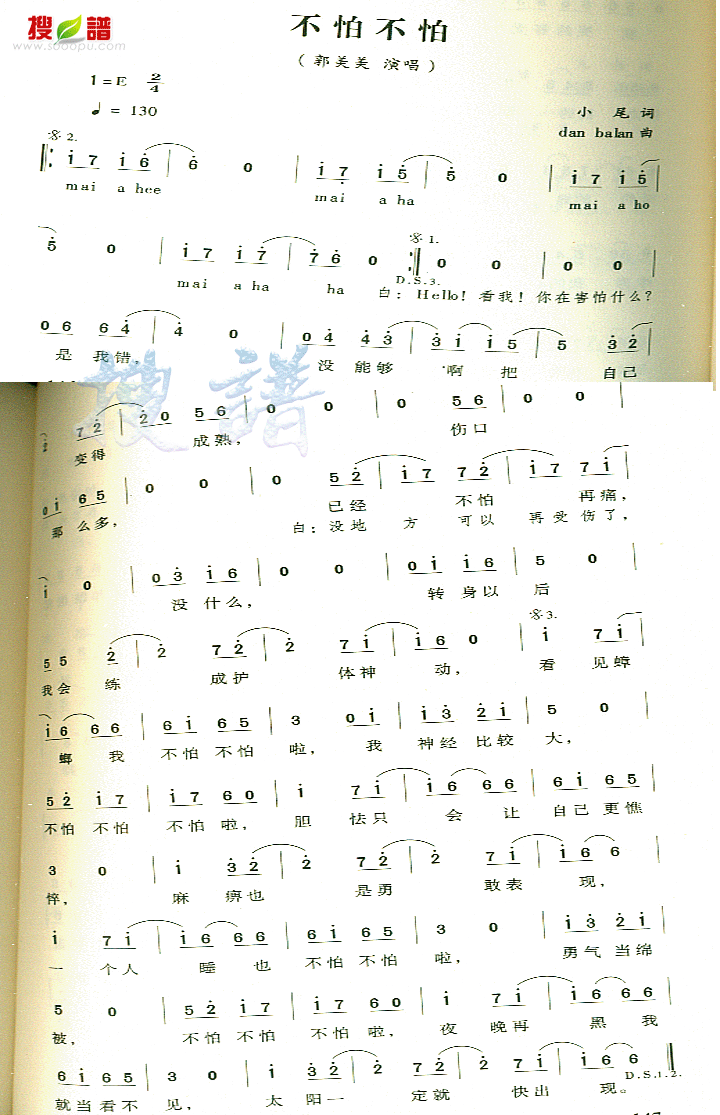 搜谱
www.sooopu.com
不怕不怕
(郭美美 演唱)
1=E 2/4
♩= 130
小尾词
dan balan 曲
𝄋2.
i 7 i 6 | 6 0 | i 7 i 5 | 5 0 | i 7 i 5
mai a hee mai a ha mai a ho
𝄋1.
5 0 | i 7 i 7 | 7 6 0 :‖ 0 0 | 0 0
D.S.3.
mai a ha ha 白: Hello! 看我! 你在害怕什么?
0 6 6 4 | 4 0 | 0 4 4 3 | 3 i i 5 | 5 3 2
是我错, 没能够 啊 把 自己
搜譜
2 7 2 | 2 0 5 6 | 0 0 | 0 5 6 | 0 0
变得 成熟, 伤口
0 i 6 5 | 0 0 | 0 5 2 | i 7 7 2 | i 7 7 i
那么多, 已经 不怕 再痛,
白: 没地 方 可以 再受伤了,
i 0 | 0 3 i 6 | 0 0 | 0 i i 6 | 5 0
没什么, 转身以后
𝄋3.
5 5 2 | 2 7 2 | 2 7 i | i 6 0 | i 7 i
我会 练 成护 体神 动, 看 见蟑
i 6 6 6 | 6 i 6 5 | 3 0 i | i 3 2 i | 5 0
螂 我 不怕不怕 啦, 我 神经比较 大,
5 2 i 7 | i 7 6 0 | i 7 i | i 6 6 6 | 6 i 6 5
不怕 不怕 不怕 啦, 胆 怯只 会 让 自己更憔
3 0 | i 3 2 | 2 7 2 | 2 7 i | i 6 6
悴, 麻 痹也 是勇 敢表 现,
i 7 i | i 6 6 6 | 6 i 6 5 | 3 0 | i 3 2 i
一 个人 睡 也 不怕不怕 啦, 勇气当绵
5 0 | 5 2 i 7 | i 7 6 0 | i 7 i | i 6 6 6
被, 不怕不怕 不怕啦, 夜 晚再 黑 我
6 i 6 5 | 3 0 | i 3 2 | 2 7 2 | 2 7 i | i 6 6
D.S.1.2.
就当看不见, 太 阳一 定就 快出 现。